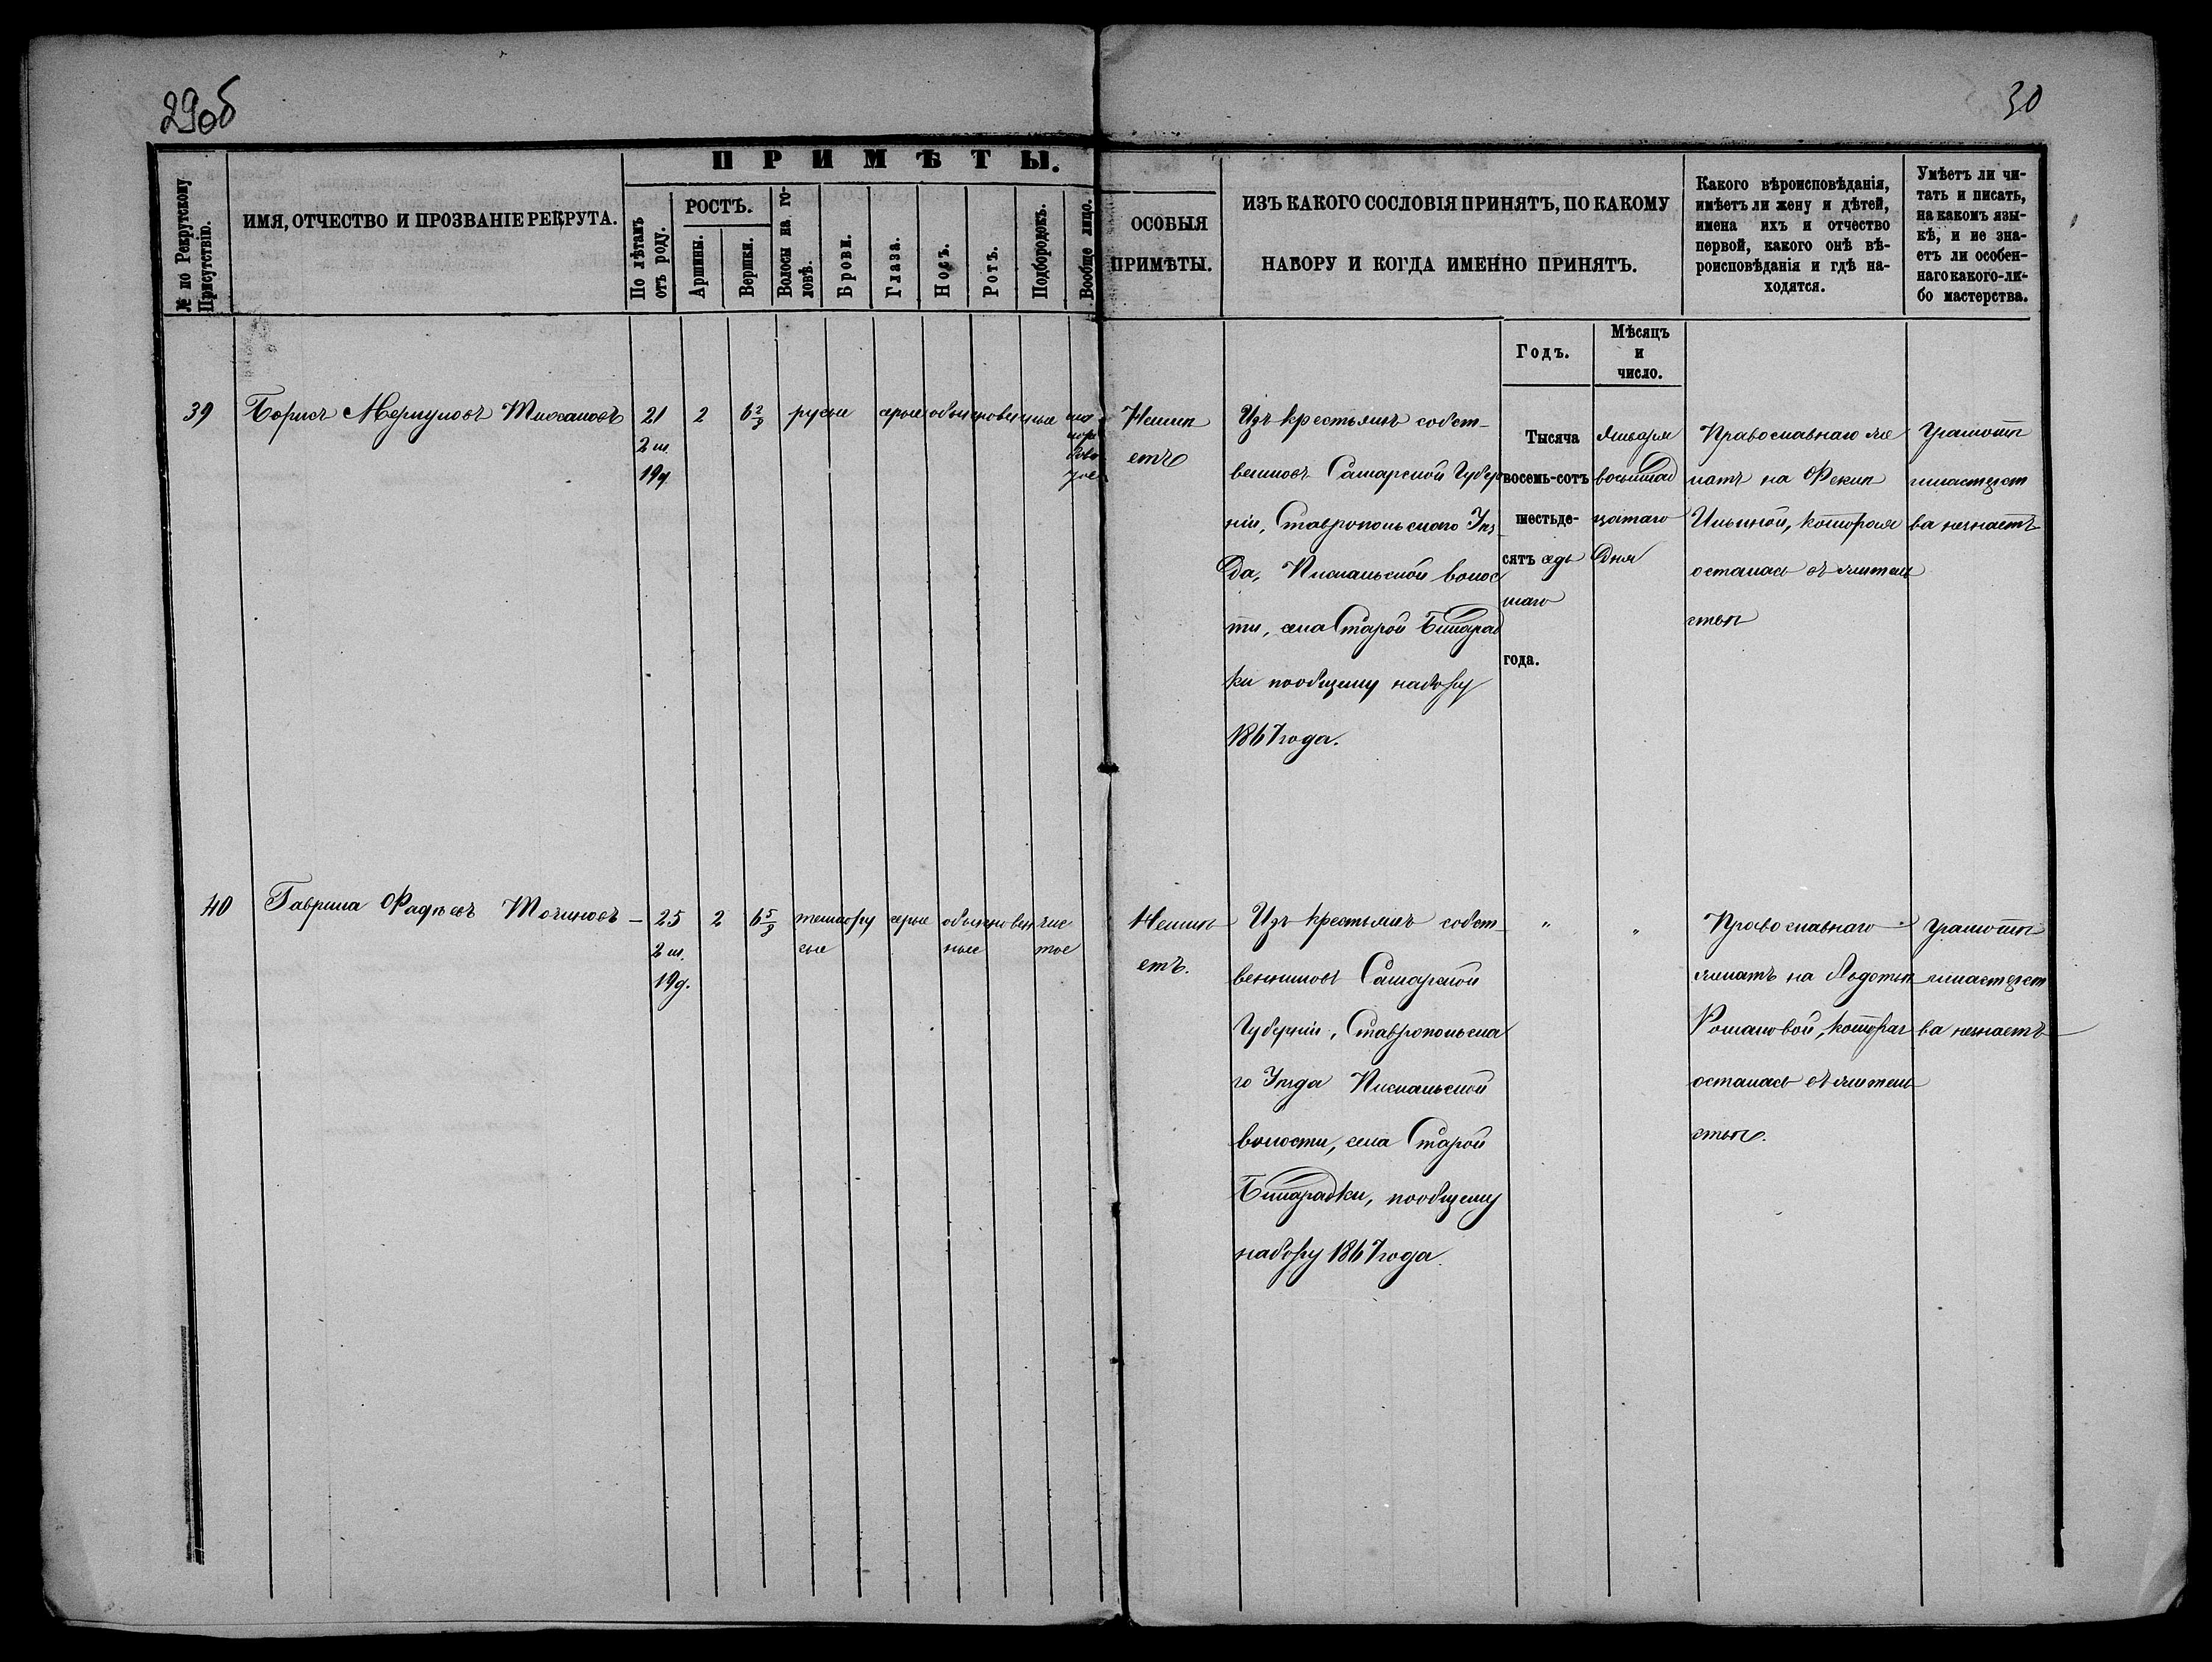 29об
30
ПРИМѢТЫ.
№ по Рекрутскому Присутствію.
ИМЯ, ОТЧЕСТВО И ПРОЗВАНІЕ РЕКРУТА.
По лѣтамъ отъ роду.
РОСТЪ.
Аршины.
Вершки.
Волосы на головѣ.
Брови.
Глаза.
Носъ.
Ротъ.
Подбородокъ.
Вообще лицо.
ОСОБЫЯ
ПРИМѢТЫ.
ИЗЪ КАКОГО СОСЛОВІЯ ПРИНЯТЪ, ПО КАКОМУ
НАБОРУ И КОГДА ИМЕННО ПРИНЯТЪ.
Какого вѣроисповѣданія,
имѣетъ ли жену и дѣтей,
имена ихъ и отчество
первой, какого онѣ вѣ-
роисповѣданія и гдѣ на-
ходятся.
Умѣетъ ли чи-
тать и писать,
на какомъ язы-
кѣ, и не зна-
етъ ли особен-
наго какого-ли-
бо мастерства.
Годъ.
Мѣсяцъ
и
число.
39
Борисъ Меркуловъ
21
2 м.
19 д
2
6 2/8
русые
серые
обыкновенные
Неимѣ
етъ
Изъ крестьянъ собст-
венниковъ Самарской Губер
ніи, Ставропольскаго Уѣз
да, Писмальской волос
ти, села Старой Бинарад
ки пообщему набору
1867 года.
Тысяча
восемь-сотъ
шестьде-
сятъ седь
маго
года.
Января
восьмнад
цатаго
Дня
Православнаго же
натъ на Фекле
Ильиной, которая
осталась въ житель
ствѣ
Грамотѣ
имастерст
ва незнаетъ
40
Гаврила Фадѣевъ Точиловъ
25
2 м.
19 д.
2
6 5/8
темнору
сые
серые
обыкновен
ные
чис
тое
Неимѣ
етъ.
Изъ крестьянъ собст-
венниковъ Самарской
Губерніи, Ставропольска
го Уѣзда Писмальской
волости, села Старой
Бинарадки, пообщему
набору 1867 года.
"
"
Православнаго
женатъ на Авдотьѣ
Романовой, которая
осталась въ житель
ствѣ.
Грамотѣ
имастерст
ва незнаетъ